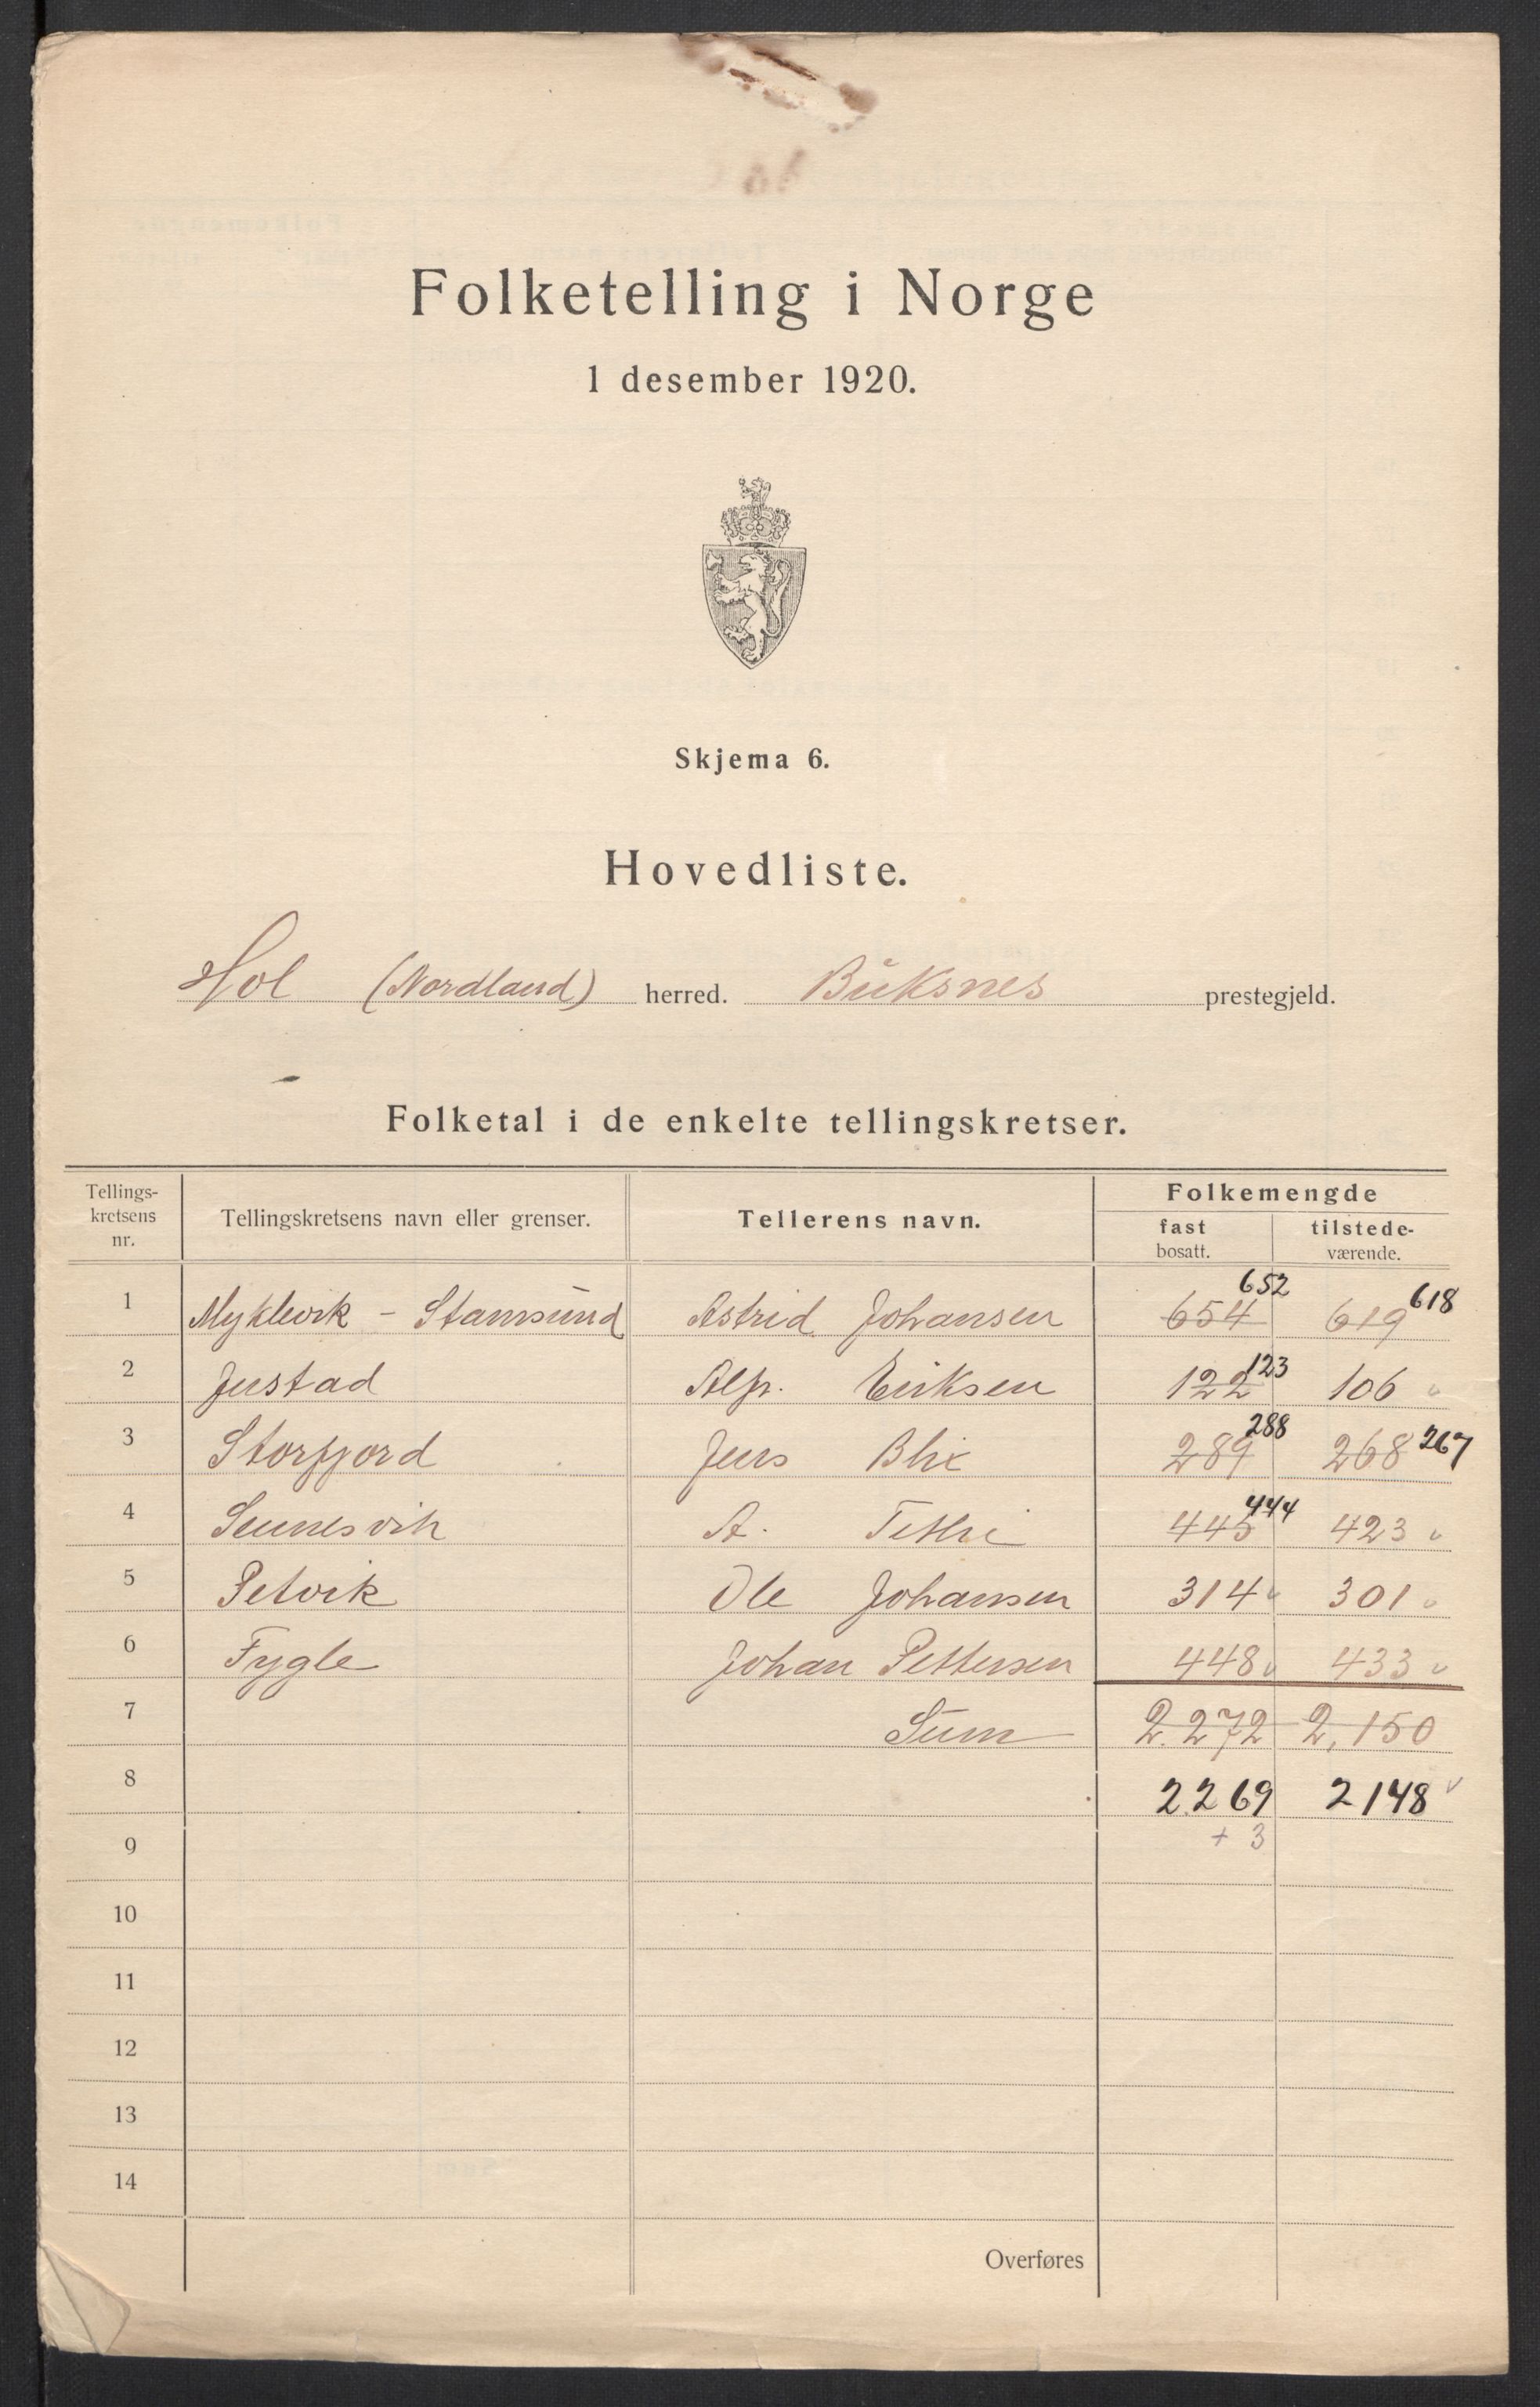 Folketelling i Norge
1 desember 1920.
Skjema 6.
Hovedliste.
Hol (Nordland) herred. Buksnes prestegjeld.
Folketal i de enkelte tellingskretser.
Tellings-kretsens nr. Tellingskretsens navn eller grenser. Tellerens navn. Folkemengde fast bosatt. tilstede-værende.
1 Myklevik - Stamsund Astrid Johansen 654 652 619 618
2 Justad Alfr. Eriksen 122 123 106
3 Storfjord Jens Blix 289 288 268 267
4 Sennesvik A. 445 444 423
5 Petvik Ole Johansen 314 301
6 Fygle Johan Pettersen 448 433
7 Sum 2.272 2,150
8 2269 2148
9 + 3
10
11
12
13
14
Overføres